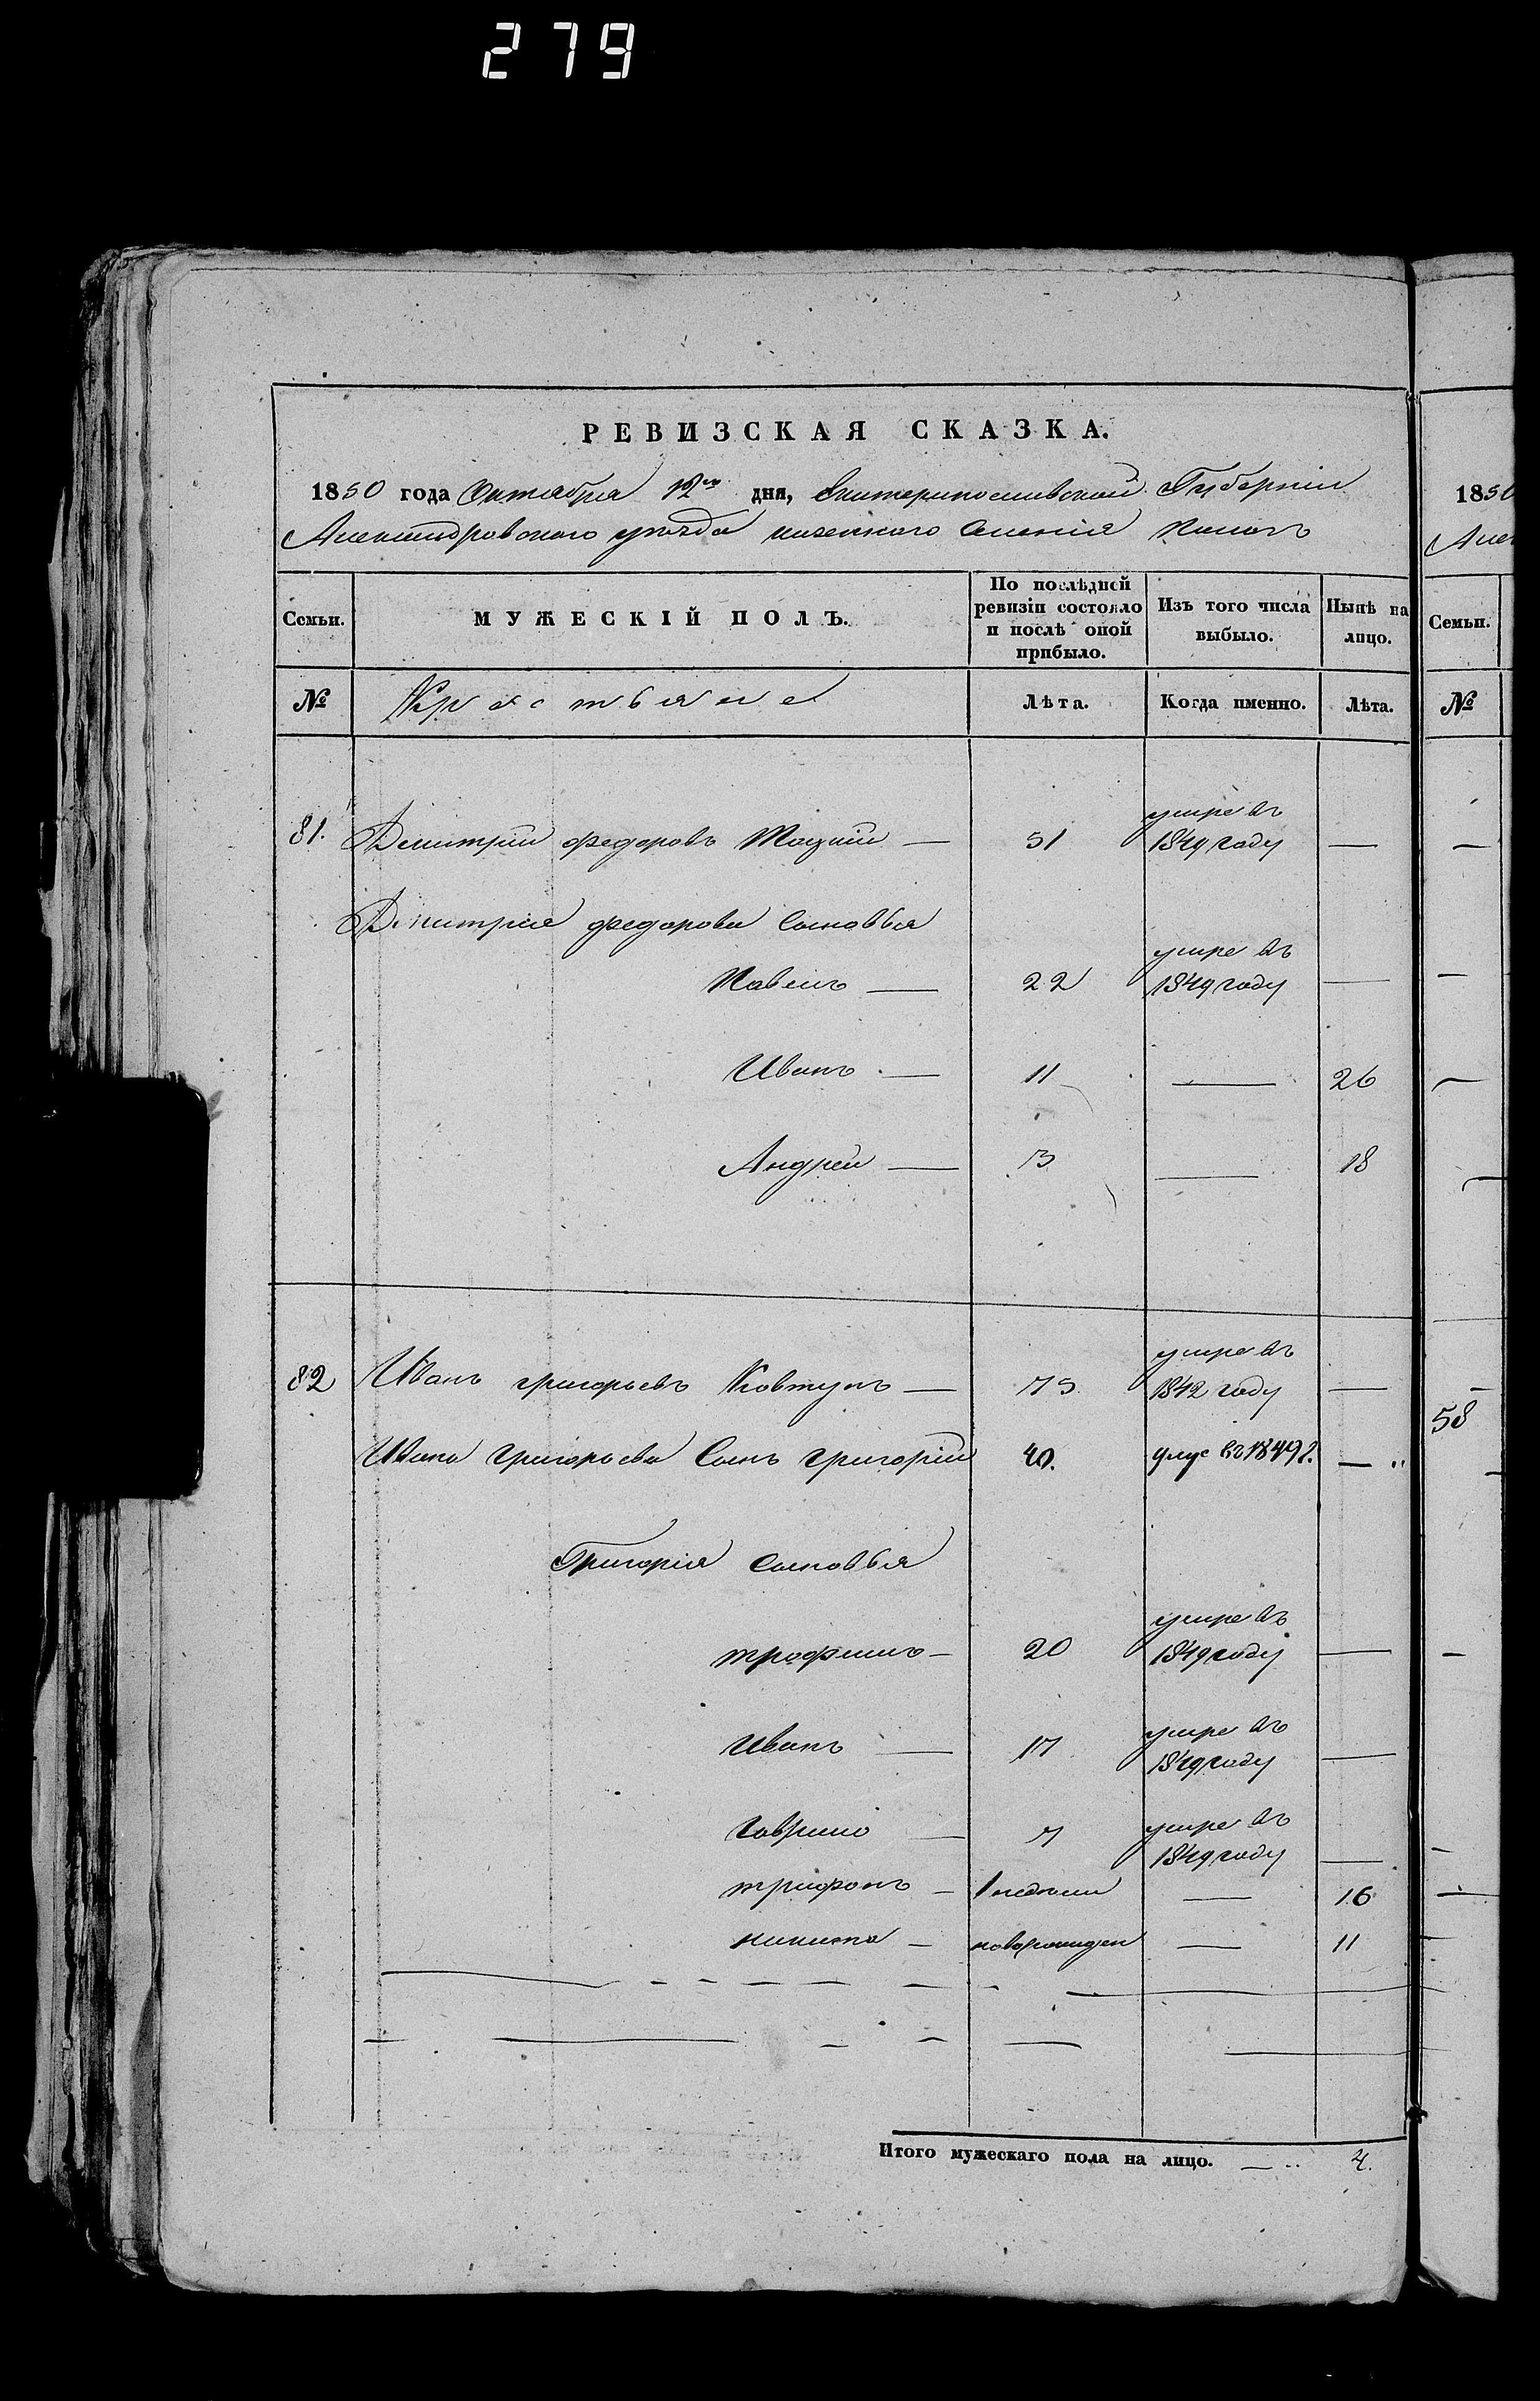 279
РЕВИЗСКАЯ СКАЗКА.
1850 года Октября 12го дня, Екатеринославской Губерніи
Александровского уѣзда казенного Селенія
Семьи.
МУЖЕСКІЙ ПОЛЪ.
По послѣдней ревизіи состояло и послѣ оной прибыло.
Изъ того числа выбыло.
Нынѣ на лицо.
№
Крестьяне
Лѣта.
Когда именно.
Лѣта.
81. Дмитрій федоровъ — 51 умре въ 1849 году —
Дмитрія федорова Сыновья
Павелъ — 22 умре въ 1849 году —
Иванъ — 11 — 26
Андрей — 3 — 18
82 Иванъ григорьевъ Ковтунъ — 75 умре въ 1842 году —
Ивана Григорьева Сынъ григорій 40. въ 1849 г. —
Григорія сыновья
трофимъ — 20 умре въ 1849 году —
Иванъ — 17 умре въ 1849 году —
Гаврило — 7 умре въ 1849 году —
трифонъ — 1 недели — 16
никита — новорожден — 11
Итого мужескаго пола на лицо. — 4.
1850
Алек
Семьи.
№
58